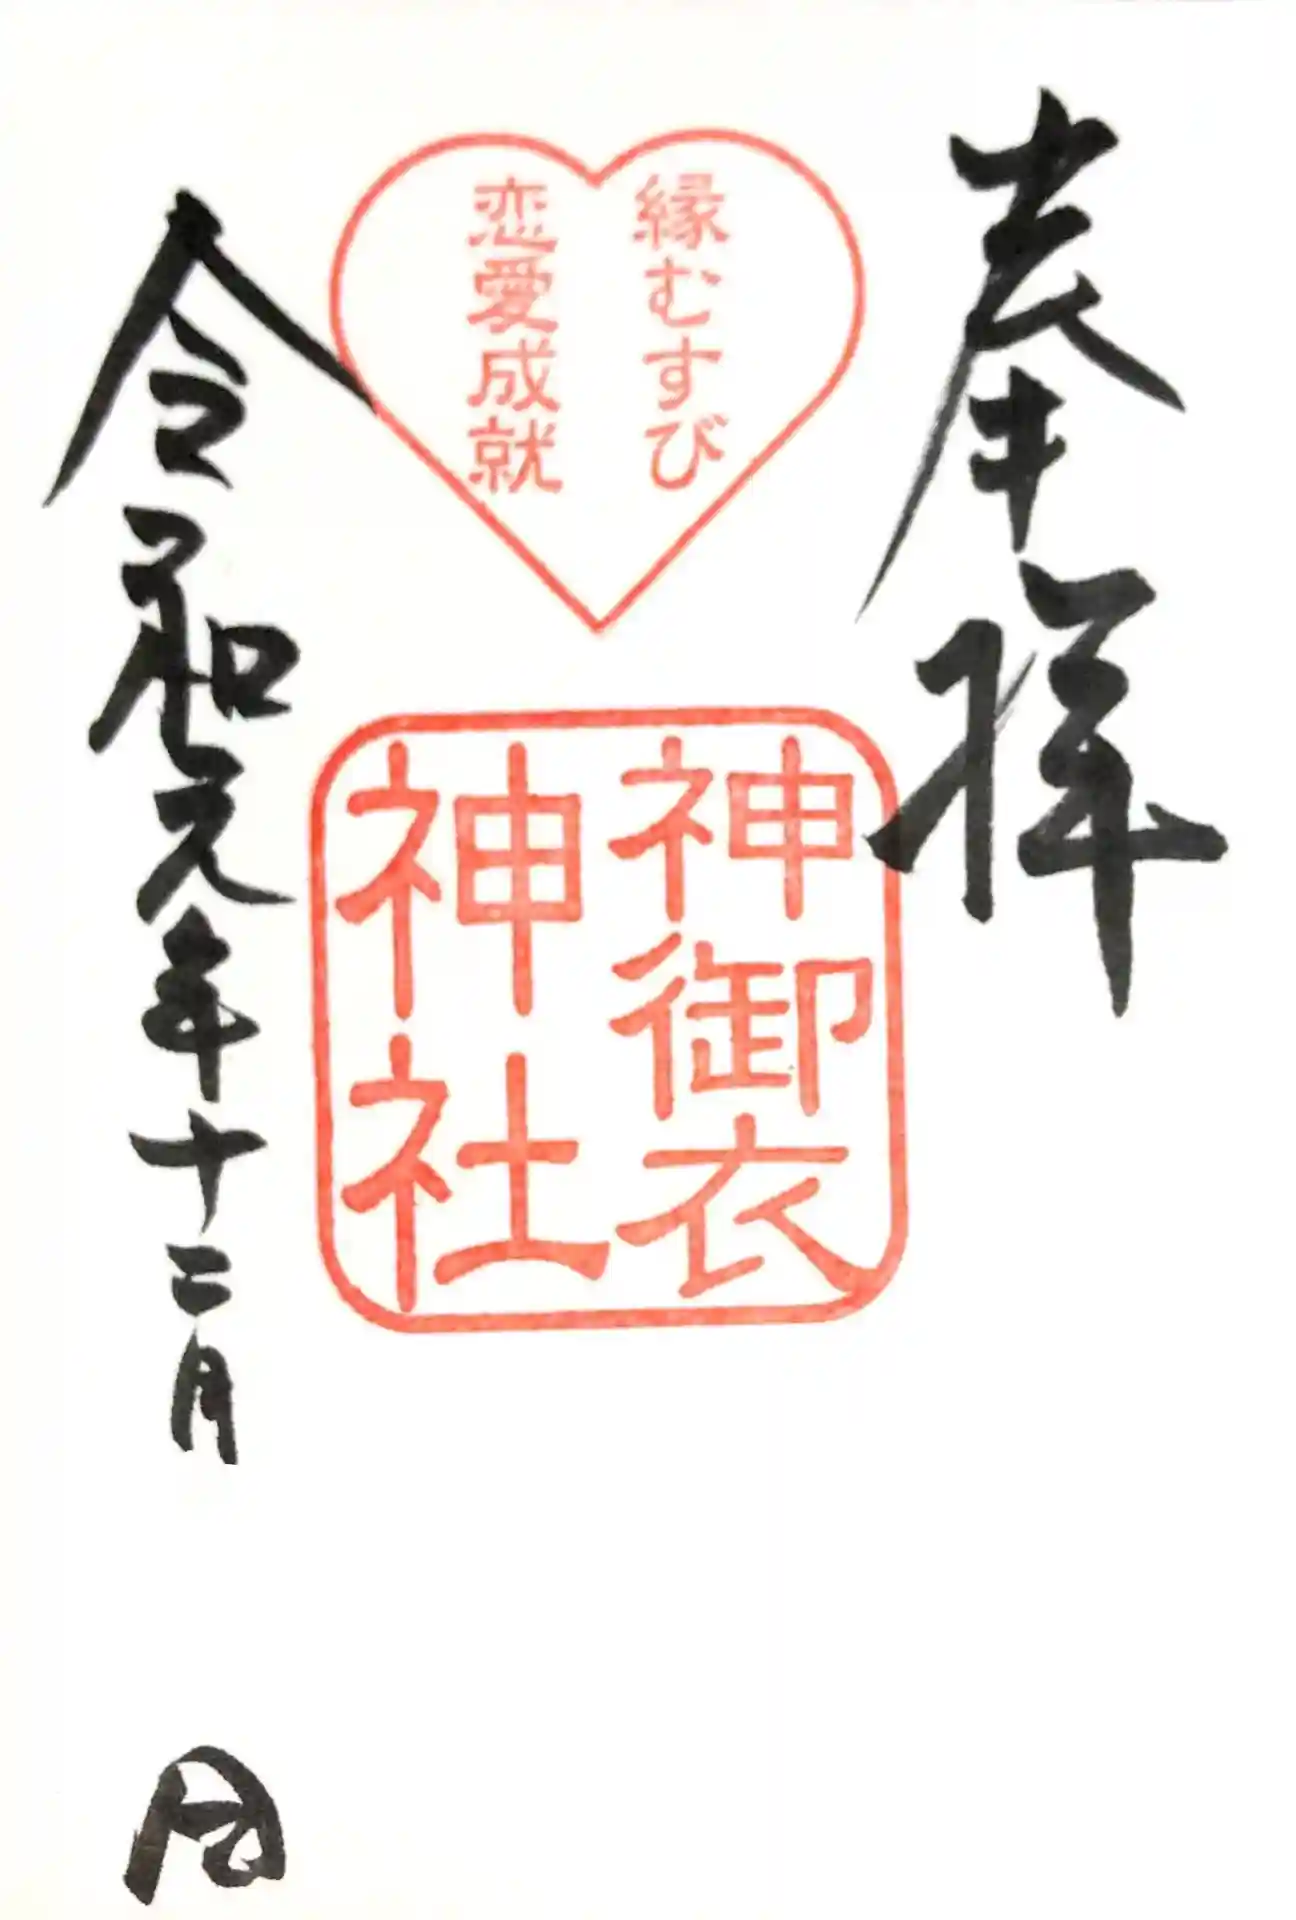 奉拝
縁むすび
恋愛成就
神御衣
神社
令和元年十二月
日